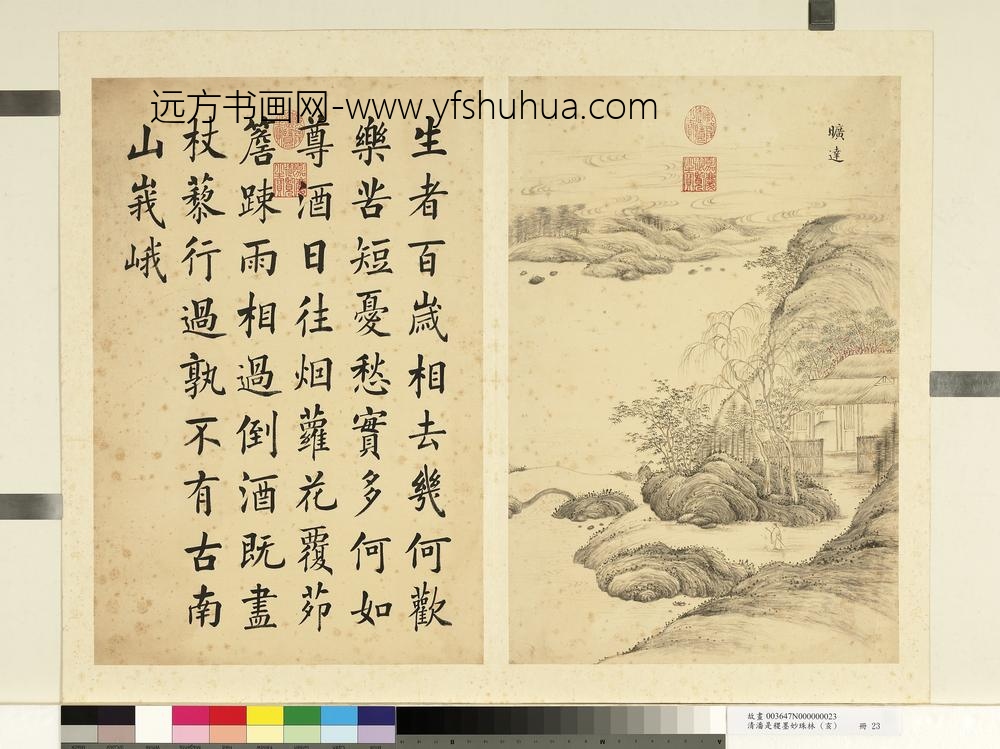 远方书画网-www.yfshuhua.com
曠達
生者百歲相去幾何歡
樂苦短憂愁實多何如
尊酒日往烟蘿花覆茆
簷踈雨相過倒酒既盡
杖藜行過孰不有古南
山峩峨
故畫 003647N000000023
清潘是稷墨妙珠林（亥） 冊 23